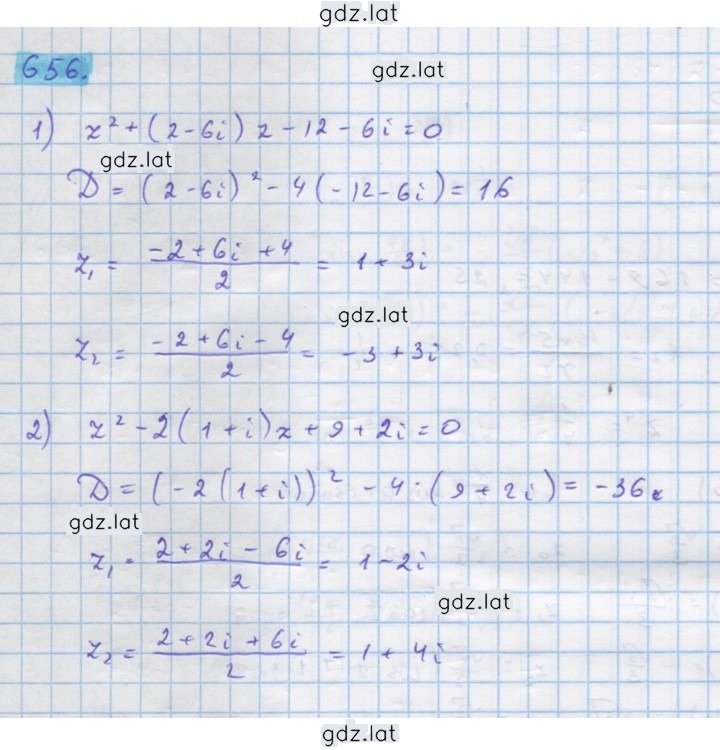 gdz.lat
656.
gdz.lat
1) z² + (2-6i) z - 12 - 6i = 0
gdz.lat
D = (2-6i)² - 4(-12-6i) = 16
z₁ = (-2+6i+4)/2 = 1+3i
gdz.lat
z₂ = (-2+6i-4)/2 = -3+3i
2) z² - 2(1+i)z + 9 + 2i = 0
D = (-2(1+i))² - 4·(9+2i) = -36
gdz.lat
z₁ = (2+2i-6i)/2 = 1-2i
gdz.lat
z₂ = (2+2i+6i)/2 = 1+4i
gdz.lat